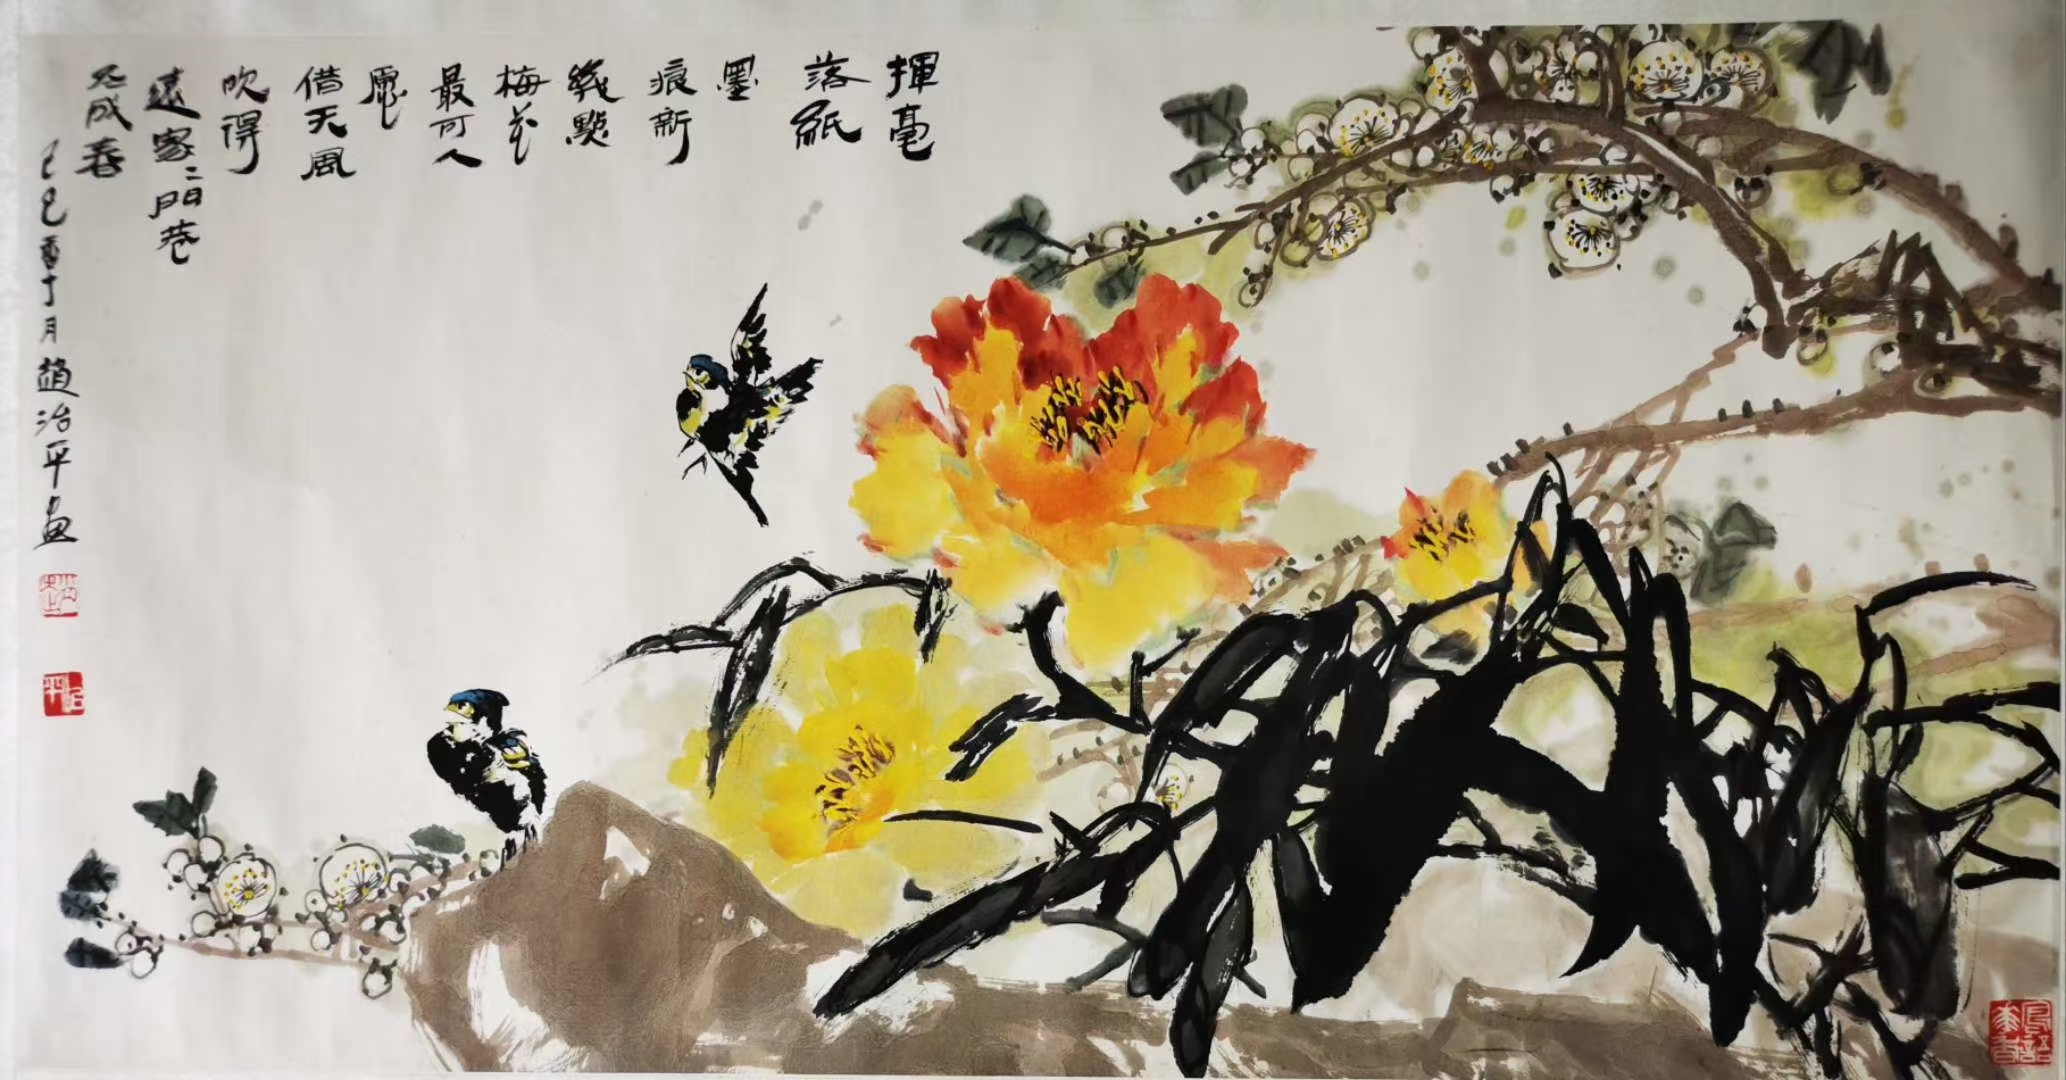 揮毫
落紙
墨
痕新
幾點
梅花
最可人
願
借天風
吹得
遠家々門巷
尽成春
己巳十月趙治平画
治平
鳥語花香